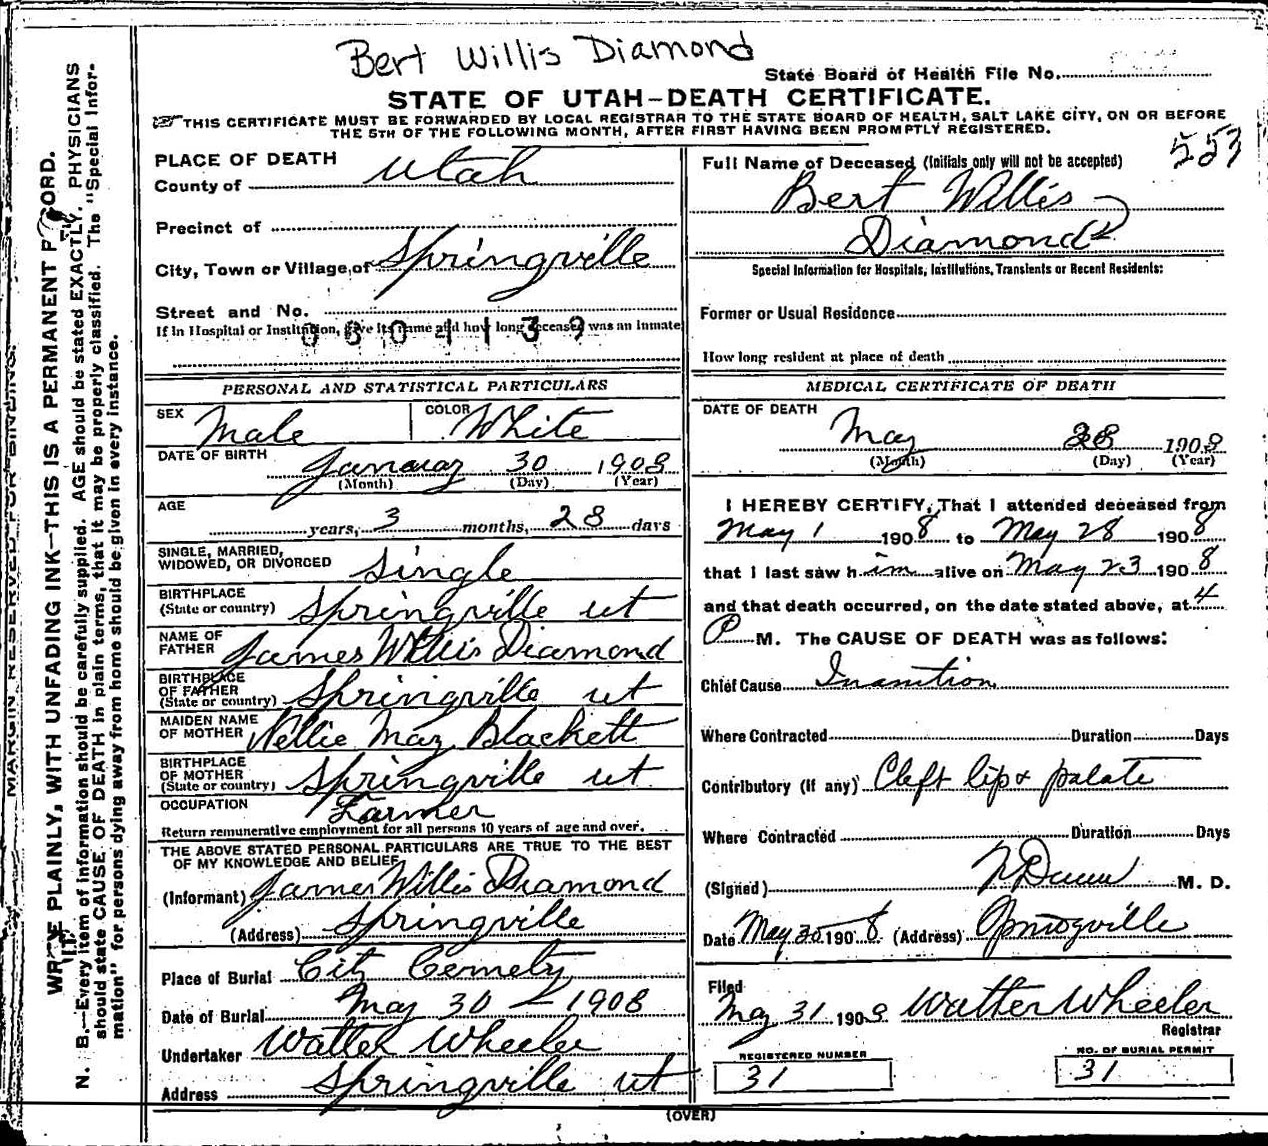 Bert Willis Diamond
State Board of Health File No.
STATE OF UTAH—DEATH CERTIFICATE.
THIS CERTIFICATE MUST BE FORWARDED BY LOCAL REGISTRAR TO THE STATE BOARD OF HEALTH, SALT LAKE CITY, ON OR BEFORE
THE 5TH OF THE FOLLOWING MONTH, AFTER FIRST HAVING BEEN PROMPTLY REGISTERED.
553
PLACE OF DEATH
County of Utah
Precinct of
City, Town or Village of Springville
Street and No.
If in Hospital or Institution, give its name and how long deceased was an inmate
0804139
Full Name of Deceased (Initials only will not be accepted)
Bert Willis
Diamond
Special Information for Hospitals, Institutions, Transients or Recent Residents:
Former or Usual Residence
How long resident at place of death
PERSONAL AND STATISTICAL PARTICULARS
SEX Male COLOR White
DATE OF BIRTH
January 30 1908
(Month) (Day) (Year)
AGE
years, 3 months, 28 days
SINGLE, MARRIED,
WIDOWED, OR DIVORCED Single
BIRTHPLACE
(State or country) Springville ut
NAME OF
FATHER James Willis Diamond
BIRTHPLACE
OF FATHER
(State or country) Springville ut
MAIDEN NAME
OF MOTHER Nellie May Blackett
BIRTHPLACE
OF MOTHER
(State or country) Springville ut
OCCUPATION Farmer
Return remunerative employment for all persons 10 years of age and over.
THE ABOVE STATED PERSONAL PARTICULARS ARE TRUE TO THE BEST
OF MY KNOWLEDGE AND BELIEF
(Informant) James Willis Diamond
(Address) Springville
Place of Burial City Cemety
Date of Burial May 30 – 1908
Undertaker Walter Wheeler
Address Springville ut
MEDICAL CERTIFICATE OF DEATH
DATE OF DEATH
May 28 1908
(Month) (Day) (Year)
I HEREBY CERTIFY, That I attended deceased from
May 1 1908 to May 28 1908
that I last saw him alive on May 23 1908
and that death occurred, on the date stated above, at 4
P M. The CAUSE OF DEATH was as follows:
Chief Cause Inanition
Where Contracted Duration Days
Contributory (if any) Cleft lip & palate
Where Contracted Duration Days
(Signed) Dunn M. D.
Date May 30 1908 (Address) Springville
Filed
May 31 1908 Walter Wheeler
Registrar
REGISTERED NUMBER
31
NO. OF BURIAL PERMIT
31
(OVER)
MARGIN RESERVED FOR BINDING.
WRITE PLAINLY, WITH UNFADING INK—THIS IS A PERMANENT RECORD.
N. B.—Every item of information should be carefully supplied. AGE should be stated EXACTLY. PHYSICIANS
should state CAUSE OF DEATH in plain terms, that it may be properly classified. The "Special Infor-
mation" for persons dying away from home should be given in every instance.